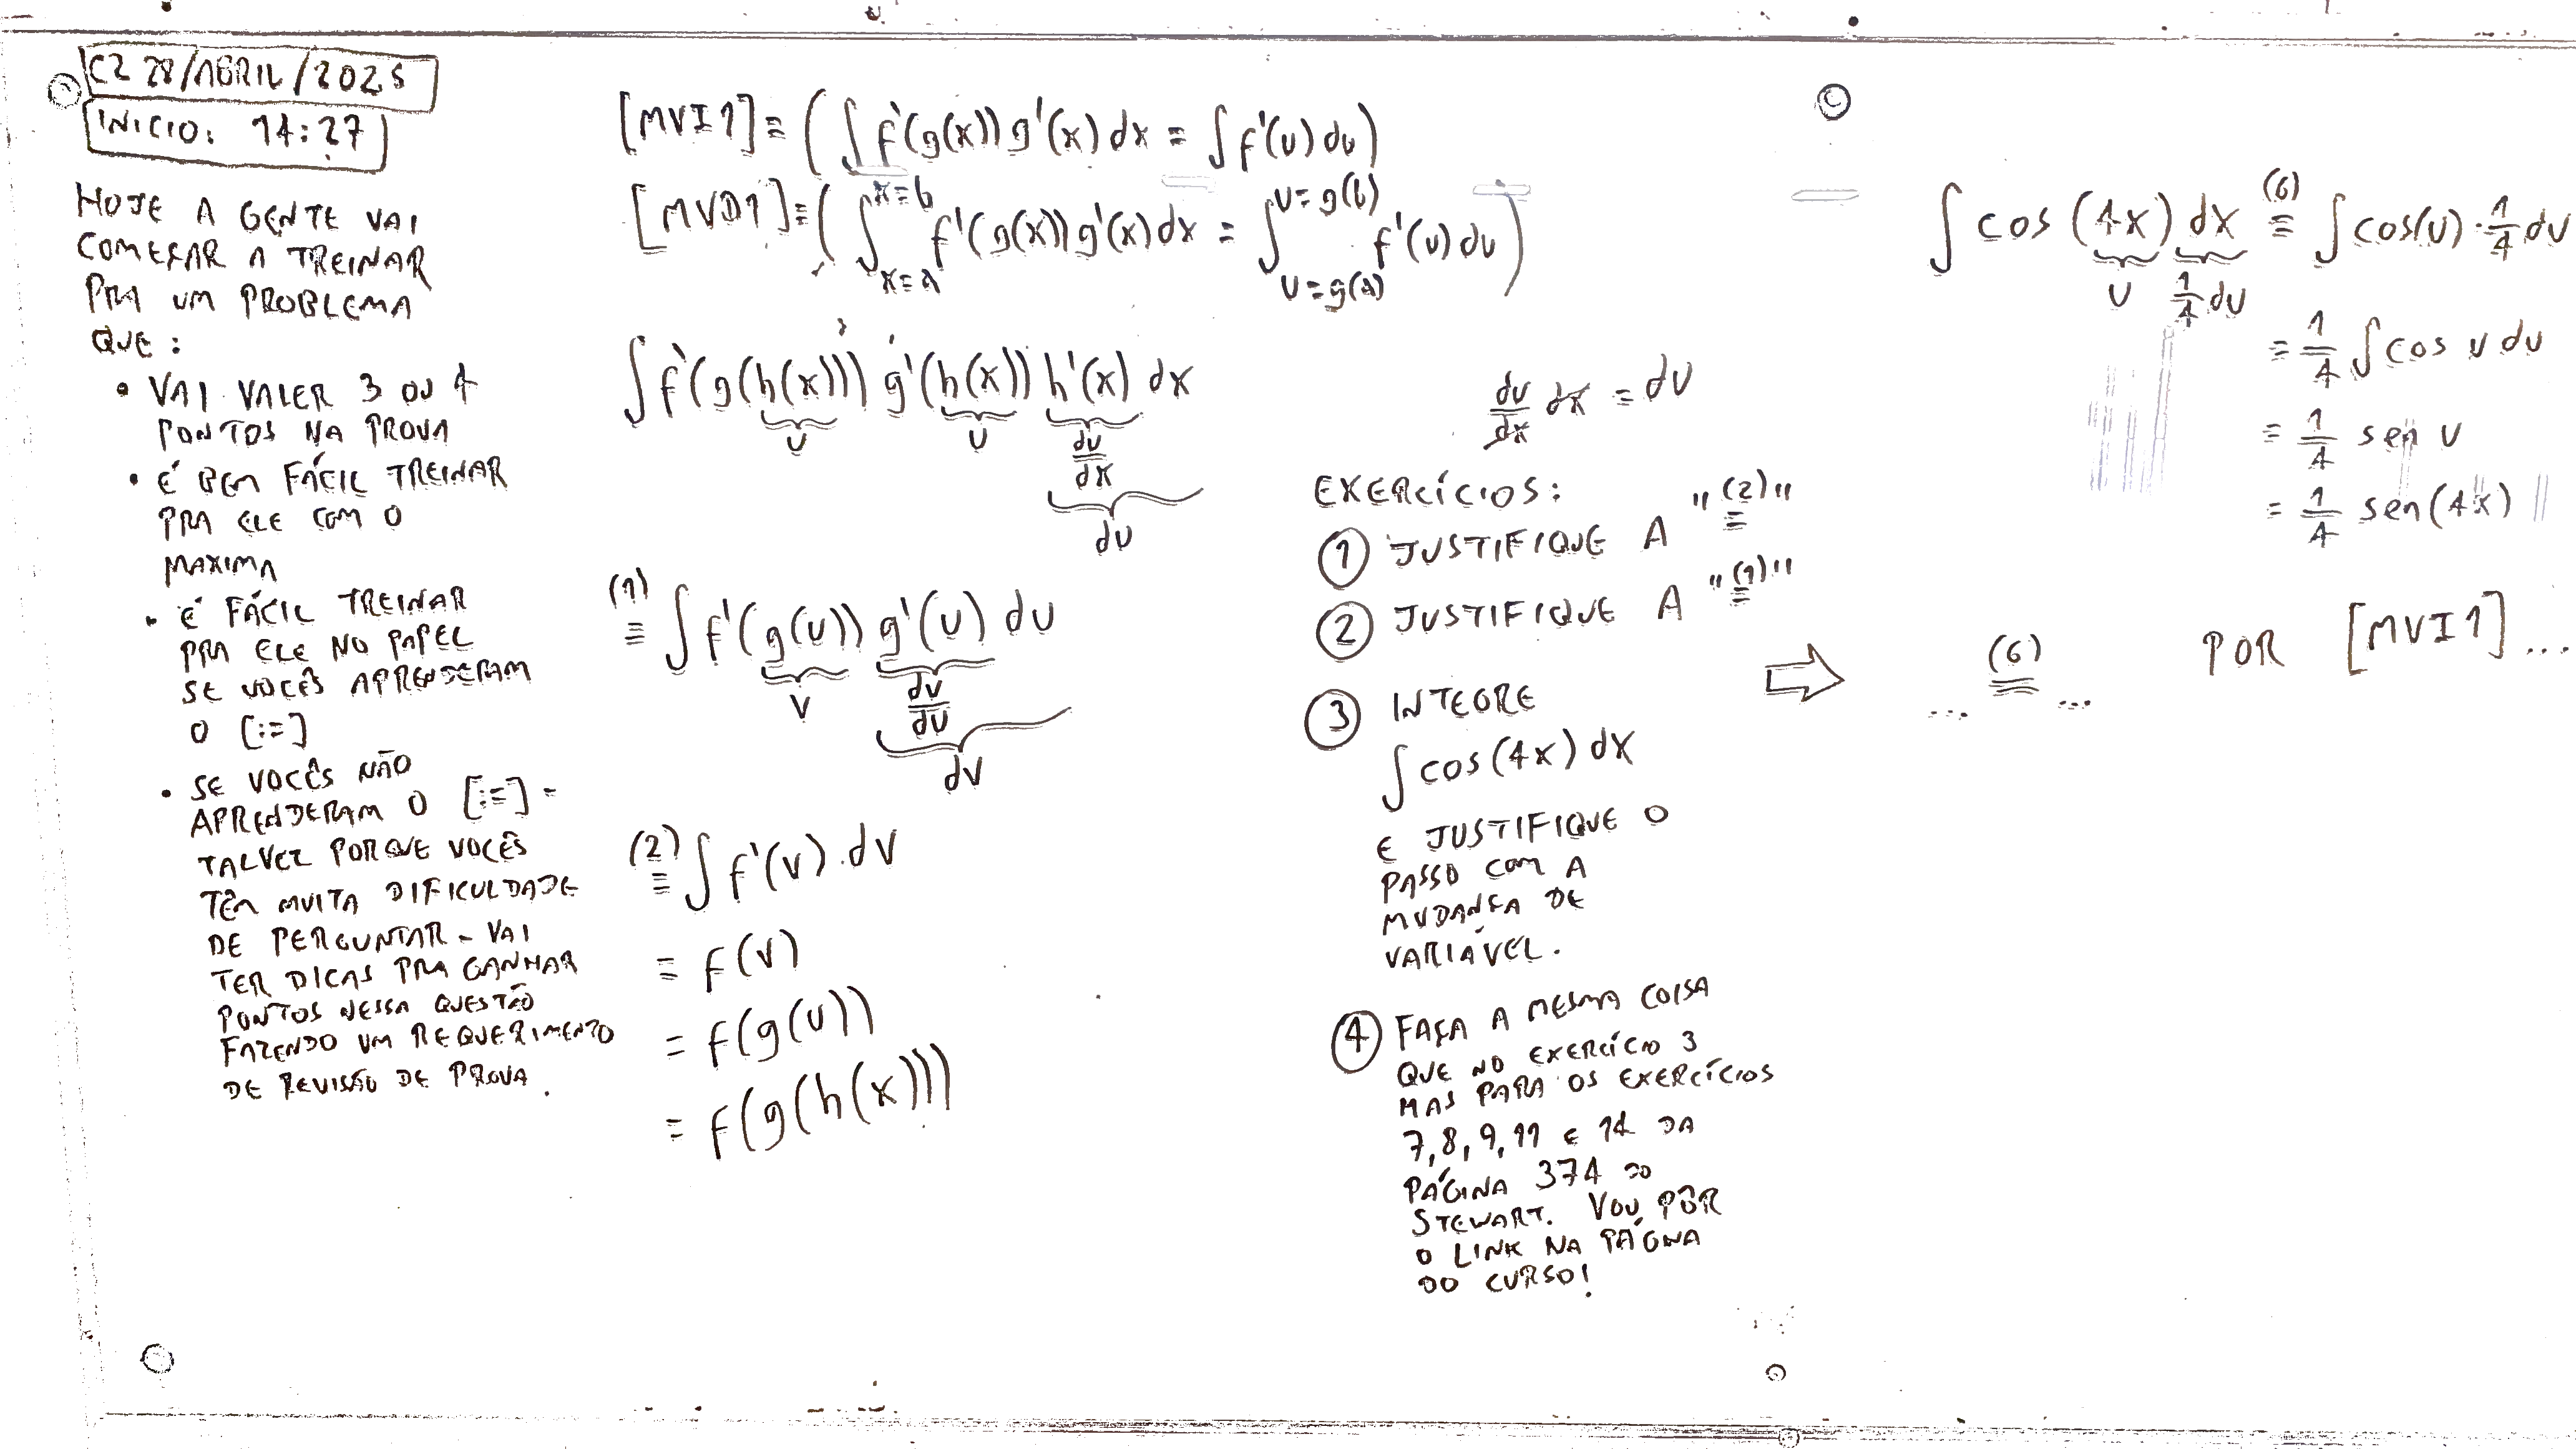 C2 28/ABRIL/2025
INICIO: 14:27
HOJE A GENTE VAI
COMEÇAR A TREINAR
PRA UM PROBLEMA
QUE:
• VAI VALER 3 OU 4
PONTOS NA PROVA
• É BEM FÁCIL TREINAR
PRA ELE COM O
MAXIMA
• É FÁCIL TREINAR
PRA ELE NO PAPEL
SE VOCÊS APRENDERAM
O [:=]
• SE VOCÊS NÃO
APRENDERAM O [:=] -
TALVEZ PORQUE VOCÊS
TÊM MUITA DIFICULDADE
DE PERGUNTAR - VAI
TER DICAS PRA GANHAR
PONTOS NESSA QUESTÃO
FAZENDO UM REQUERIMENTO
DE REVISÃO DE PROVA.
[MVI1] = (∫ f'(g(x)) g'(x) dx = ∫ f'(u) du)
[MVD1] = (∫_{x=a}^{x=b} f'(g(x)) g'(x) dx = ∫_{u=g(a)}^{u=g(b)} f'(u) du)
∫ f'(g(h(x))) g'(h(x)) h'(x) dx
u u du/dx
du
(1) = ∫ f'(g(u)) g'(u) du
v dv/du
dv
(2) = ∫ f'(v) dv
= f(v)
= f(g(u))
= f(g(h(x)))
du/dx dx = du
EXERCÍCIOS:
① JUSTIFIQUE A "(2)="
② JUSTIFIQUE A "(1)="
③ INTEGRE
∫ cos(4x) dx
E JUSTIFIQUE O
PASSO COM A
MUDANÇA DE
VARIÁVEL.
④ FAÇA A MESMA COISA
QUE NO EXERCÍCIO 3
MAS PARA OS EXERCÍCIOS
7, 8, 9, 11 E 14 DA
PÁGINA 374 DO
STEWART. VOU PÔR
O LINK NA PÁGINA
DO CURSO!
∫ cos (4x) dx (6)= ∫ cos(u) · 1/4 du
u 1/4 du
= 1/4 ∫ cos u du
= 1/4 sen u
= 1/4 sen(4x)
⇒ ... (6)= ... POR [MVI1] ...